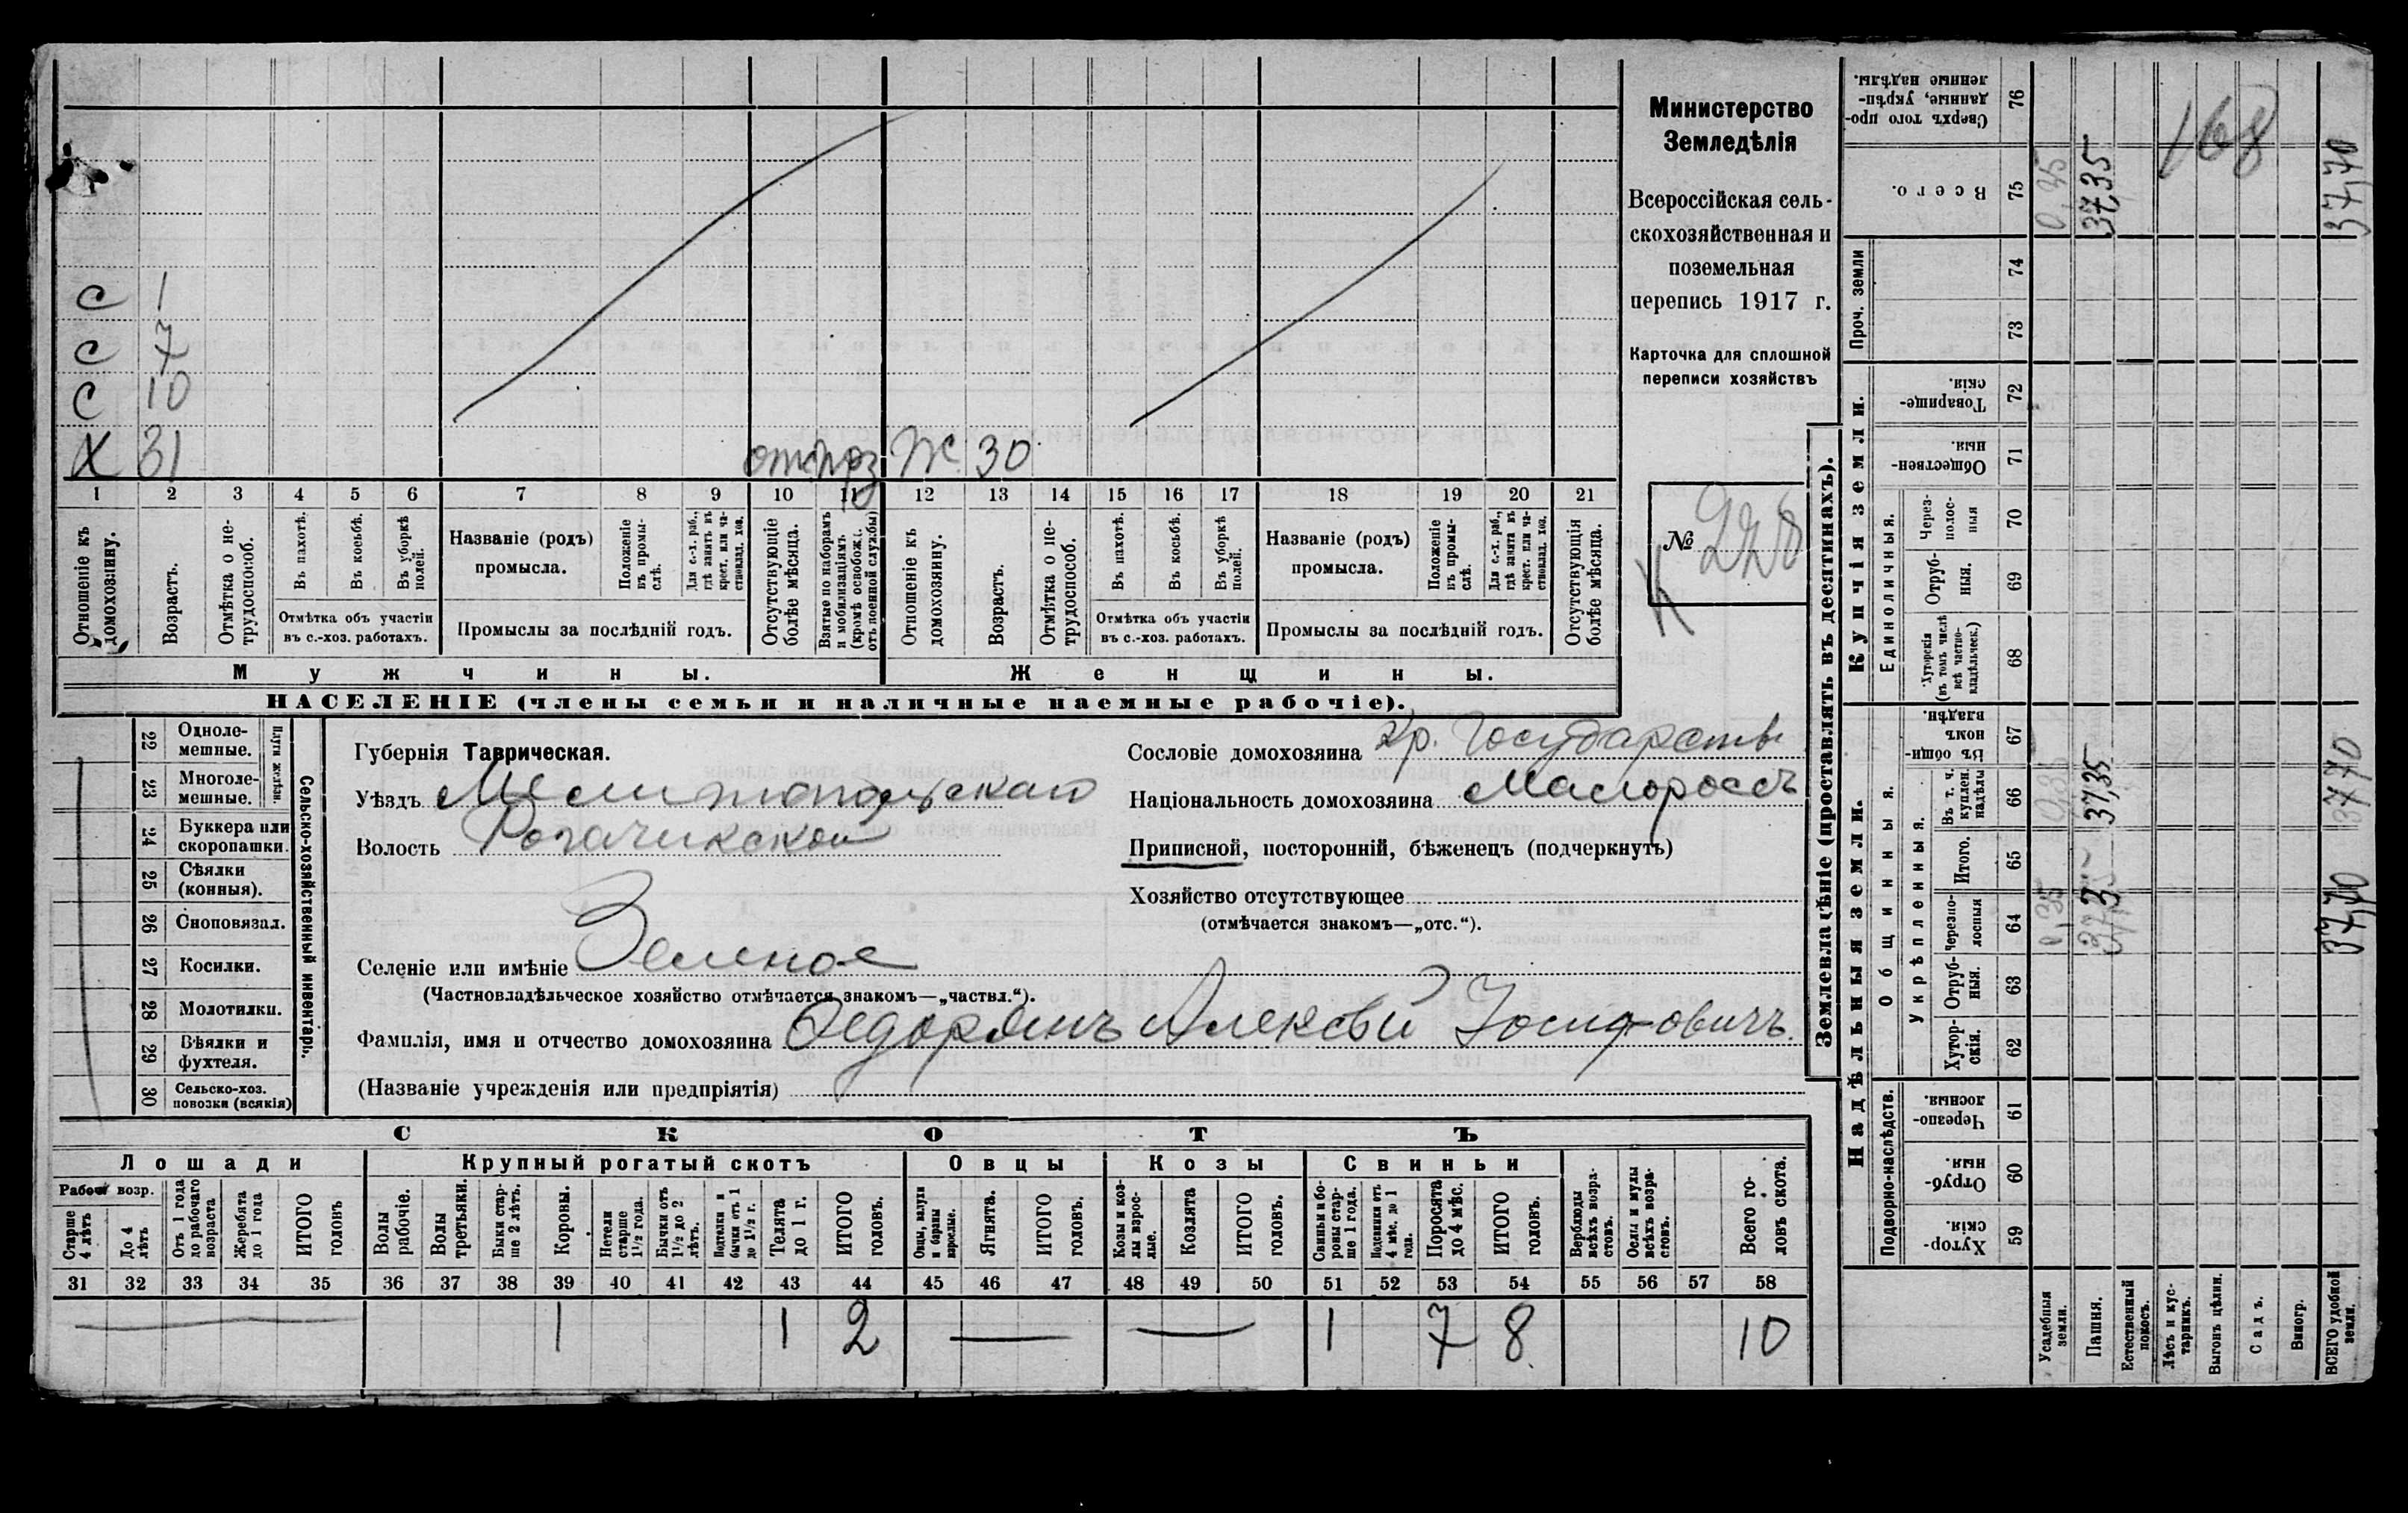 С 1
С 7
С 10
Х 31 Ж. 30
1 2 3 4 5 6 7 8 9 10 11 12 13 14 15 16 17 18 19 20 21
Отношеніе къ домохозяину.
Возрастъ.
Отмѣтка о не-
трудоспособ.
Въ пахотѣ.
Въ косьбѣ.
Въ уборкѣ
полей.
Отмѣтка объ участіи
въ с.-хоз. работахъ.
Названіе (родъ)
промысла.
Положеніе
въ промы-
слѣ.
Для с.-х. раб.,
гдѣ занятъ въ
крест. или ча-
стновлад. хоз.
Промыслы за послѣдній годъ.
Отсутствующіе
болѣе мѣсяца.
Взятые по наборамъ
и мобилизаціямъ
(кромѣ освобожд.
отъ военной службы)
Отношеніе къ
домохозяину.
Возрастъ.
Отмѣтка о не-
трудоспособ.
Въ пахотѣ.
Въ косьбѣ.
Въ уборкѣ
полей.
Отмѣтка объ участіи
въ с.-хоз. работахъ.
Названіе (родъ)
промысла.
Положеніе
въ промы-
слѣ.
Для с.-х. раб.,
гдѣ занята въ
крест. или ча-
стновлад. хоз.
Промыслы за послѣдній годъ.
Отсутствующія
болѣе мѣсяца.
Мужчины. Женщины.
НАСЕЛЕНІЕ (члены семьи и наличные наемные рабочіе).
Министерство
Земледѣлія
Всероссійская сель-
скохозяйственная и
поземельная
перепись 1917 г.
Карточка для сплошной
переписи хозяйствъ
№ 228
К
22 Одноле-
мешные.
23 Многоле-
мешные.
Плуги желѣзн.
24 Буккера или
скоропашки.
25 Сѣялки
(конныя).
26 Сноповязал.
27 Косилки.
28 Молотилки.
29 Вѣялки и
фухтеля.
30 Сельско-хоз.
повозки (всякія)
Сельско-хозяйственный инвентарь.
Губернія Таврическая.
Уѣздъ Мелитопольскаго
Волость Рогачикской
Селеніе или имѣніе Зеленое
(Частновладѣльческое хозяйство отмѣчается знакомъ—„частвл.“).
Фамилія, имя и отчество домохозяина Ѳедоринъ Алексѣй Іосифовичъ.
(Названіе учрежденія или предпріятія)
Сословіе домохозяина Кр. Государств
Національность домохозяина Малороссъ
Приписной, посторонній, бѣженецъ (подчеркнуть)
Хозяйство отсутствующее
(отмѣчается знакомъ—„отс.“).
СКОТЪ
Лошади Крупный рогатый скотъ Овцы Козы Свиньи
Рабоч. возр.
Старше
4 лѣтъ
До 4
лѣтъ
Отъ 1 года
до рабочаго
возраста
Жеребята
до 1 года
ИТОГО
головъ
Волы
рабочіе.
Волы
третьяки.
Быки стар-
ше 2 лѣтъ.
Коровы.
Нетели
старше
1 1/2 года.
Бычки отъ
1 1/2 до 2
лѣтъ.
Подтелки и
бычки отъ 1
до 1 1/2 г.
Телята
до 1 г.
ИТОГО
головъ.
Овцы, валухи
и бараны
взрослые.
Ягнята.
ИТОГО
головъ.
Козы и коз-
лы взрос-
лые.
Козлята
ИТОГО
головъ.
Свиньи и бо-
ровы стар-
ше 1 года.
Подсвинки отъ
4 мѣс. до 1
года.
Поросята
до 4 мѣс.
ИТОГО
головъ.
Верблюды
всѣхъ возра-
стовъ.
Ослы и мулы
всѣхъ возра-
стовъ.
Всего го-
ловъ скота.
31 32 33 34 35 36 37 38 39 40 41 42 43 44 45 46 47 48 49 50 51 52 53 54 55 56 57 58
1 1 2 1 7 8 10
Землевладѣніе (проставлять въ десятинахъ).
Купчія земли.
Надѣльныя земли.
Проч. земли
Единоличныя.
Общинныя.
Укрѣпленныя.
Подворно-наслѣдств.
Сверхъ того про-
данные, укрѣп-
ленные надѣлы. 76
Всего. 75
74
73
Товарище-
скія. 72
Обществен-
ныя. 71
Через-
полос-
ныя 70
Отруб-
ныя. 69
Хуторскія
(въ томъ числѣ
всѣ частно-
владѣльческ.) 68
Въ общин-
номъ
владѣн. 67
Въ т. ч.
куплен.
надѣлы 66
Итого. 65
Черезпо-
лосныя 64
Отруб-
ныя. 63
Хутор-
скія. 62
Черезпо-
лосныя. 61
Отруб-
ныя. 60
Хутор-
скія. 59
Усадебныя
земли. 0,35 0,35 0,35
Пашня. 37,35 37,35 37,35
Естественный
покосъ.
Лѣсъ и кус-
тарникъ.
Выгонъ цѣлин.
Садъ.
Виногр.
ВСЕГО удобной
земли. 37,70 37,70 37,70
168